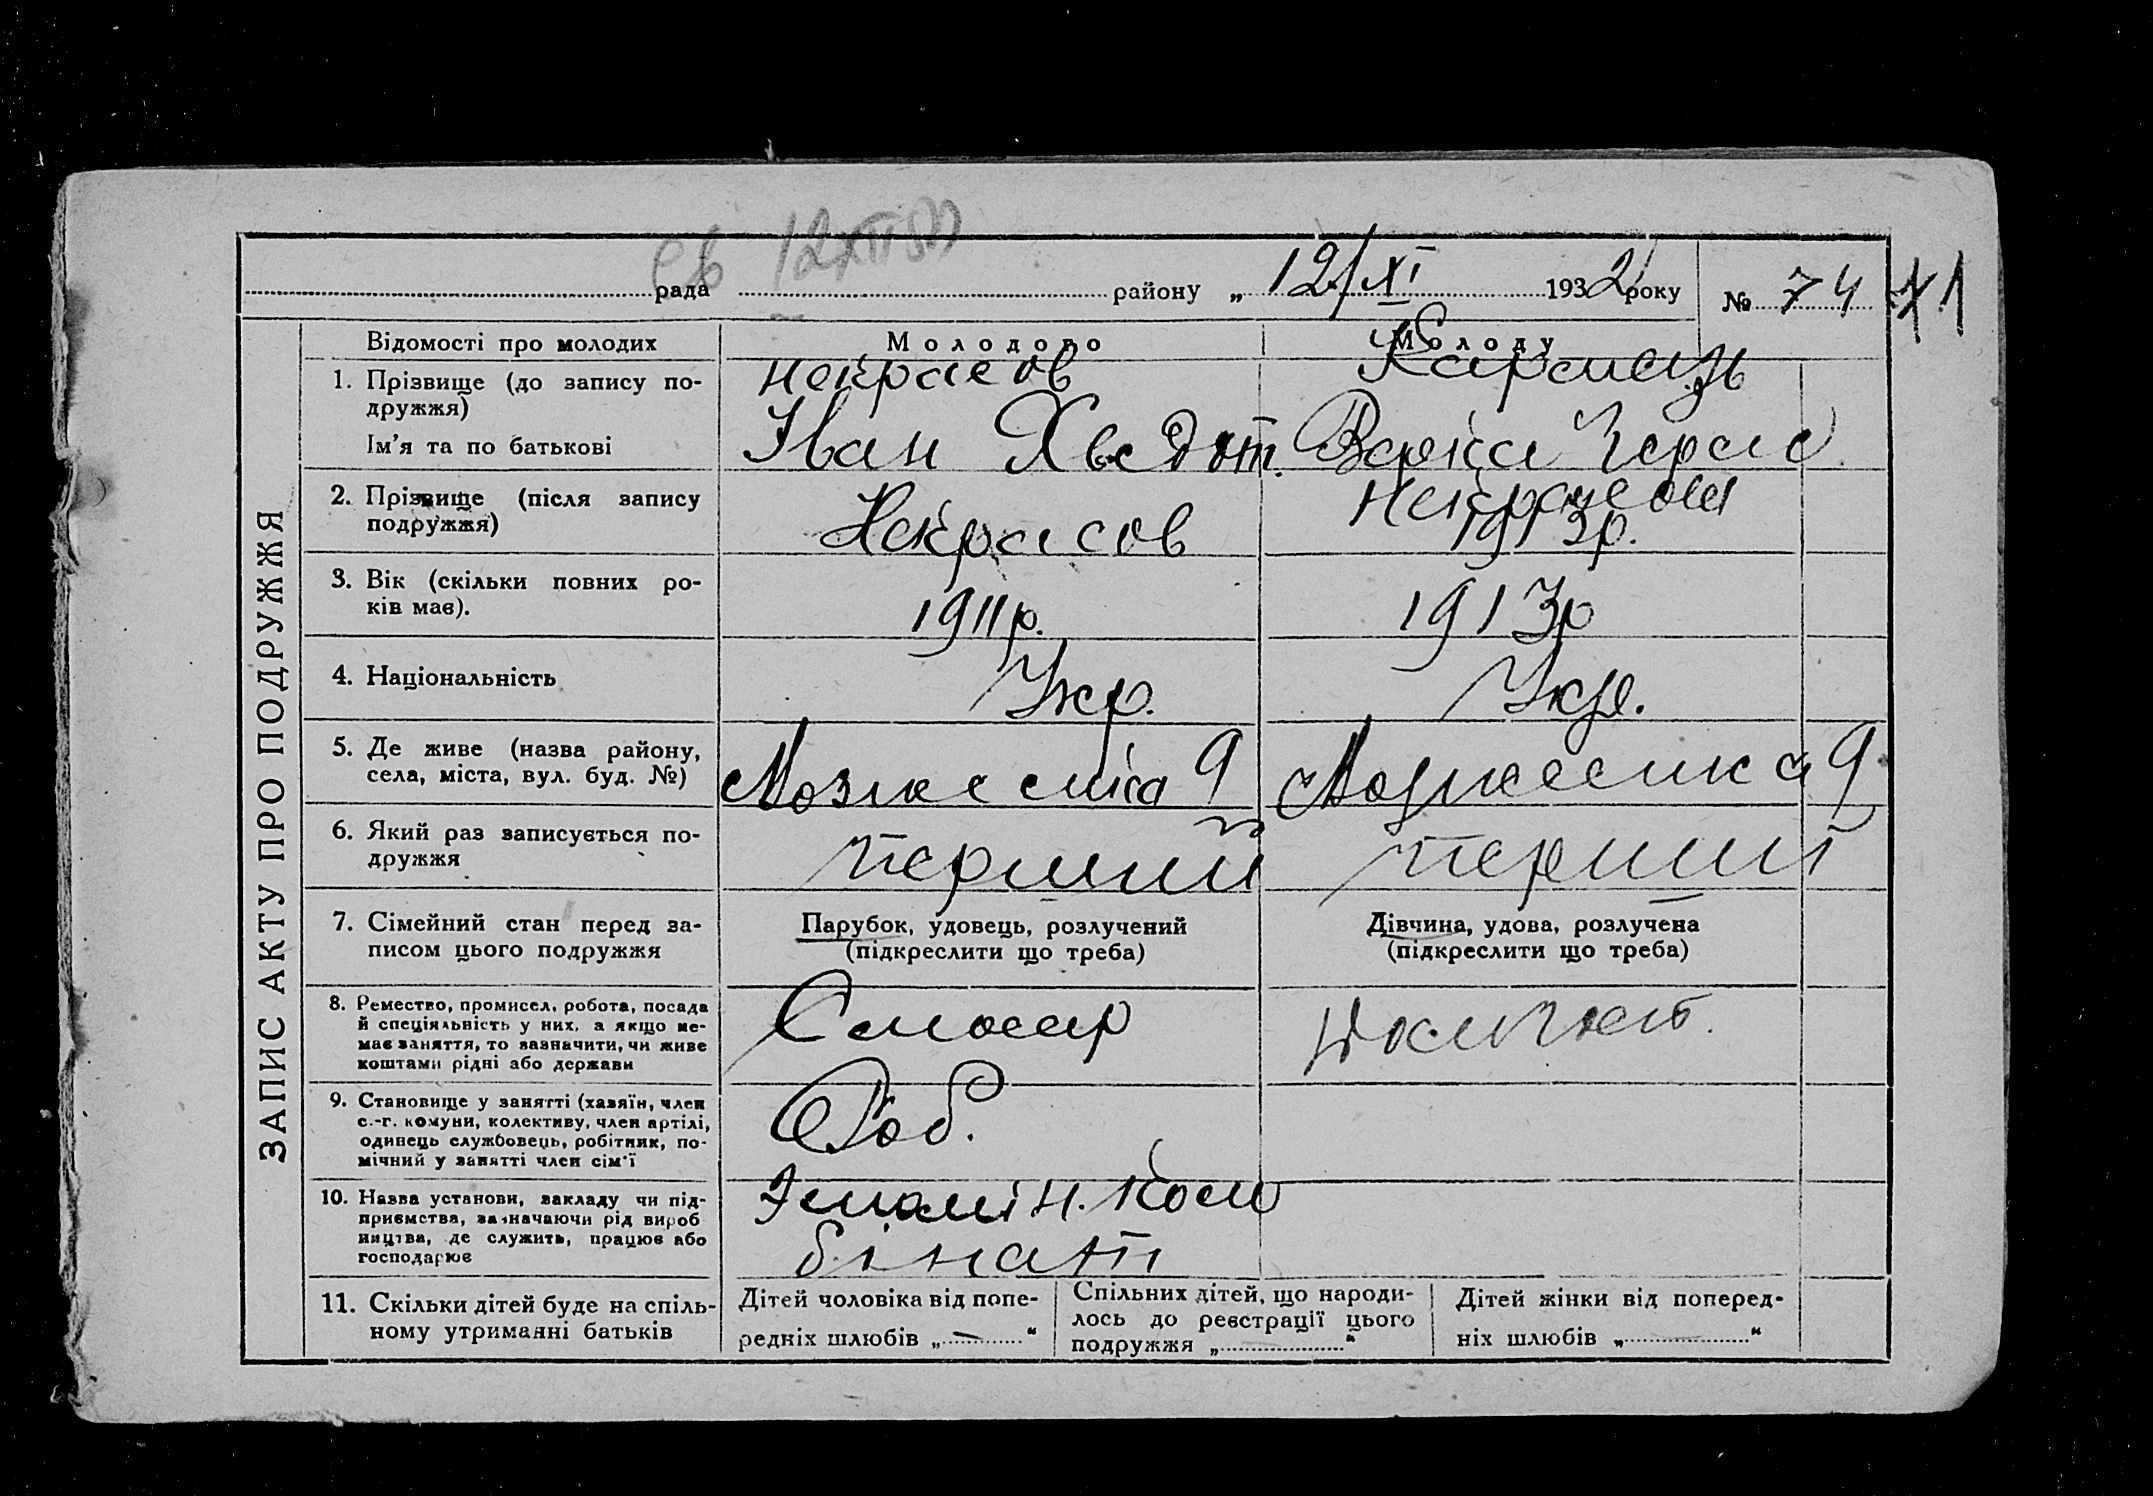 рада району „ 12/XI 1932 року № 74 71
ЗАПИС АКТУ ПРО ПОДРУЖЖЯ
Відомості про молодих
Молодого
Молоду
1. Прізвище (до запису по-
дружжя)
Ім'я та по батькові
Некрасов
Іван Хведот.
Варка Герас
2. Прізвище (після запису
подружжя)
Некрасов
Некрасова
1913р.
3. Вік (скільки повних ро-
ків має).
1911р.
1913р
4. Національність
Укр.
Укр.
5. Де живе (назва району,
села, міста, вул. буд. №)
9
9
6. Який раз записується по-
дружжя
перший
перший
7. Сімейний стан перед за-
писом цього подружжя
Парубок, удовець, розлучений
(підкреслити що треба)
Дівчина, удова, розлучена
(підкреслити що треба)
8. Ремество, промисел, робота, посада
й спеціяльність у них, а якщо не-
має заняття, то зазначити, чи живе
коштами рідні або держави
Слюсар
9. Становище у занятті (хазяїн, член
с.-г. комуни, колективу, член артілі,
одинець службовець, робітник, по-
мічний у занятті член сім'ї
Роб.
10. Назва установи, закладу чи під-
приємства, зазначаючи рід вироб
ництва, де служить, працює або
господарює
Ком
бінат
11. Скільки дітей буде на спіль-
ному утриманні батьків
Дітей чоловіка від попе-
редніх шлюбів „ — “
Спільних дітей, що народи-
лось до реєстрації цього
подружжя „ “
Дітей жінки від поперед-
ніх шлюбів „ “